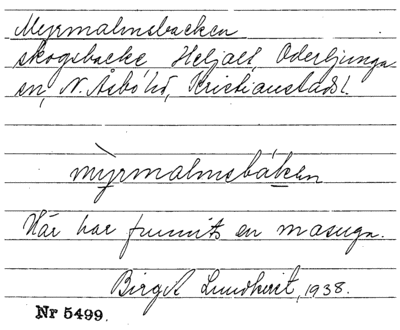 Myrmalmsbacken
skogsbacke Heljalt, Oderljunga
sn, N. Åsbo hd, Kristianstads l.
mỳrmalmsbáken
Här har funnits en masugn.
Birgit Lundkvist, 1938.
Nr 5499.